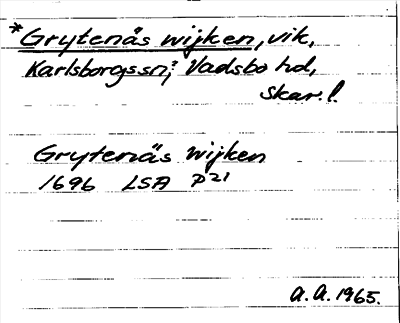 *Grytenäs wijken, vik,
Karlsborgssn; Vadsbo hd,
Skar. l.
Grytenäs wijken
1696 LSA P21
A. A. 1965.